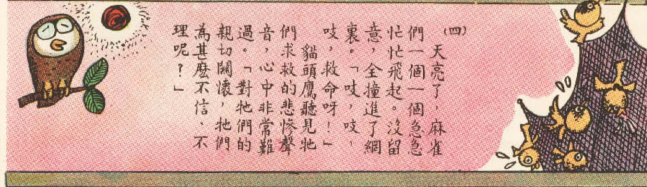 (四)
天亮了，麻雀
們一個一個急急
忙忙飛起。沒留
意，全撞進了網
裏。「吱，吱，
吱，救命呀！」
貓頭鷹聽見牠
們求救的悲慘聲
音，心中非常難
過。「對牠們的
親切關懷，牠們
為甚麼不信、不
理呢？」